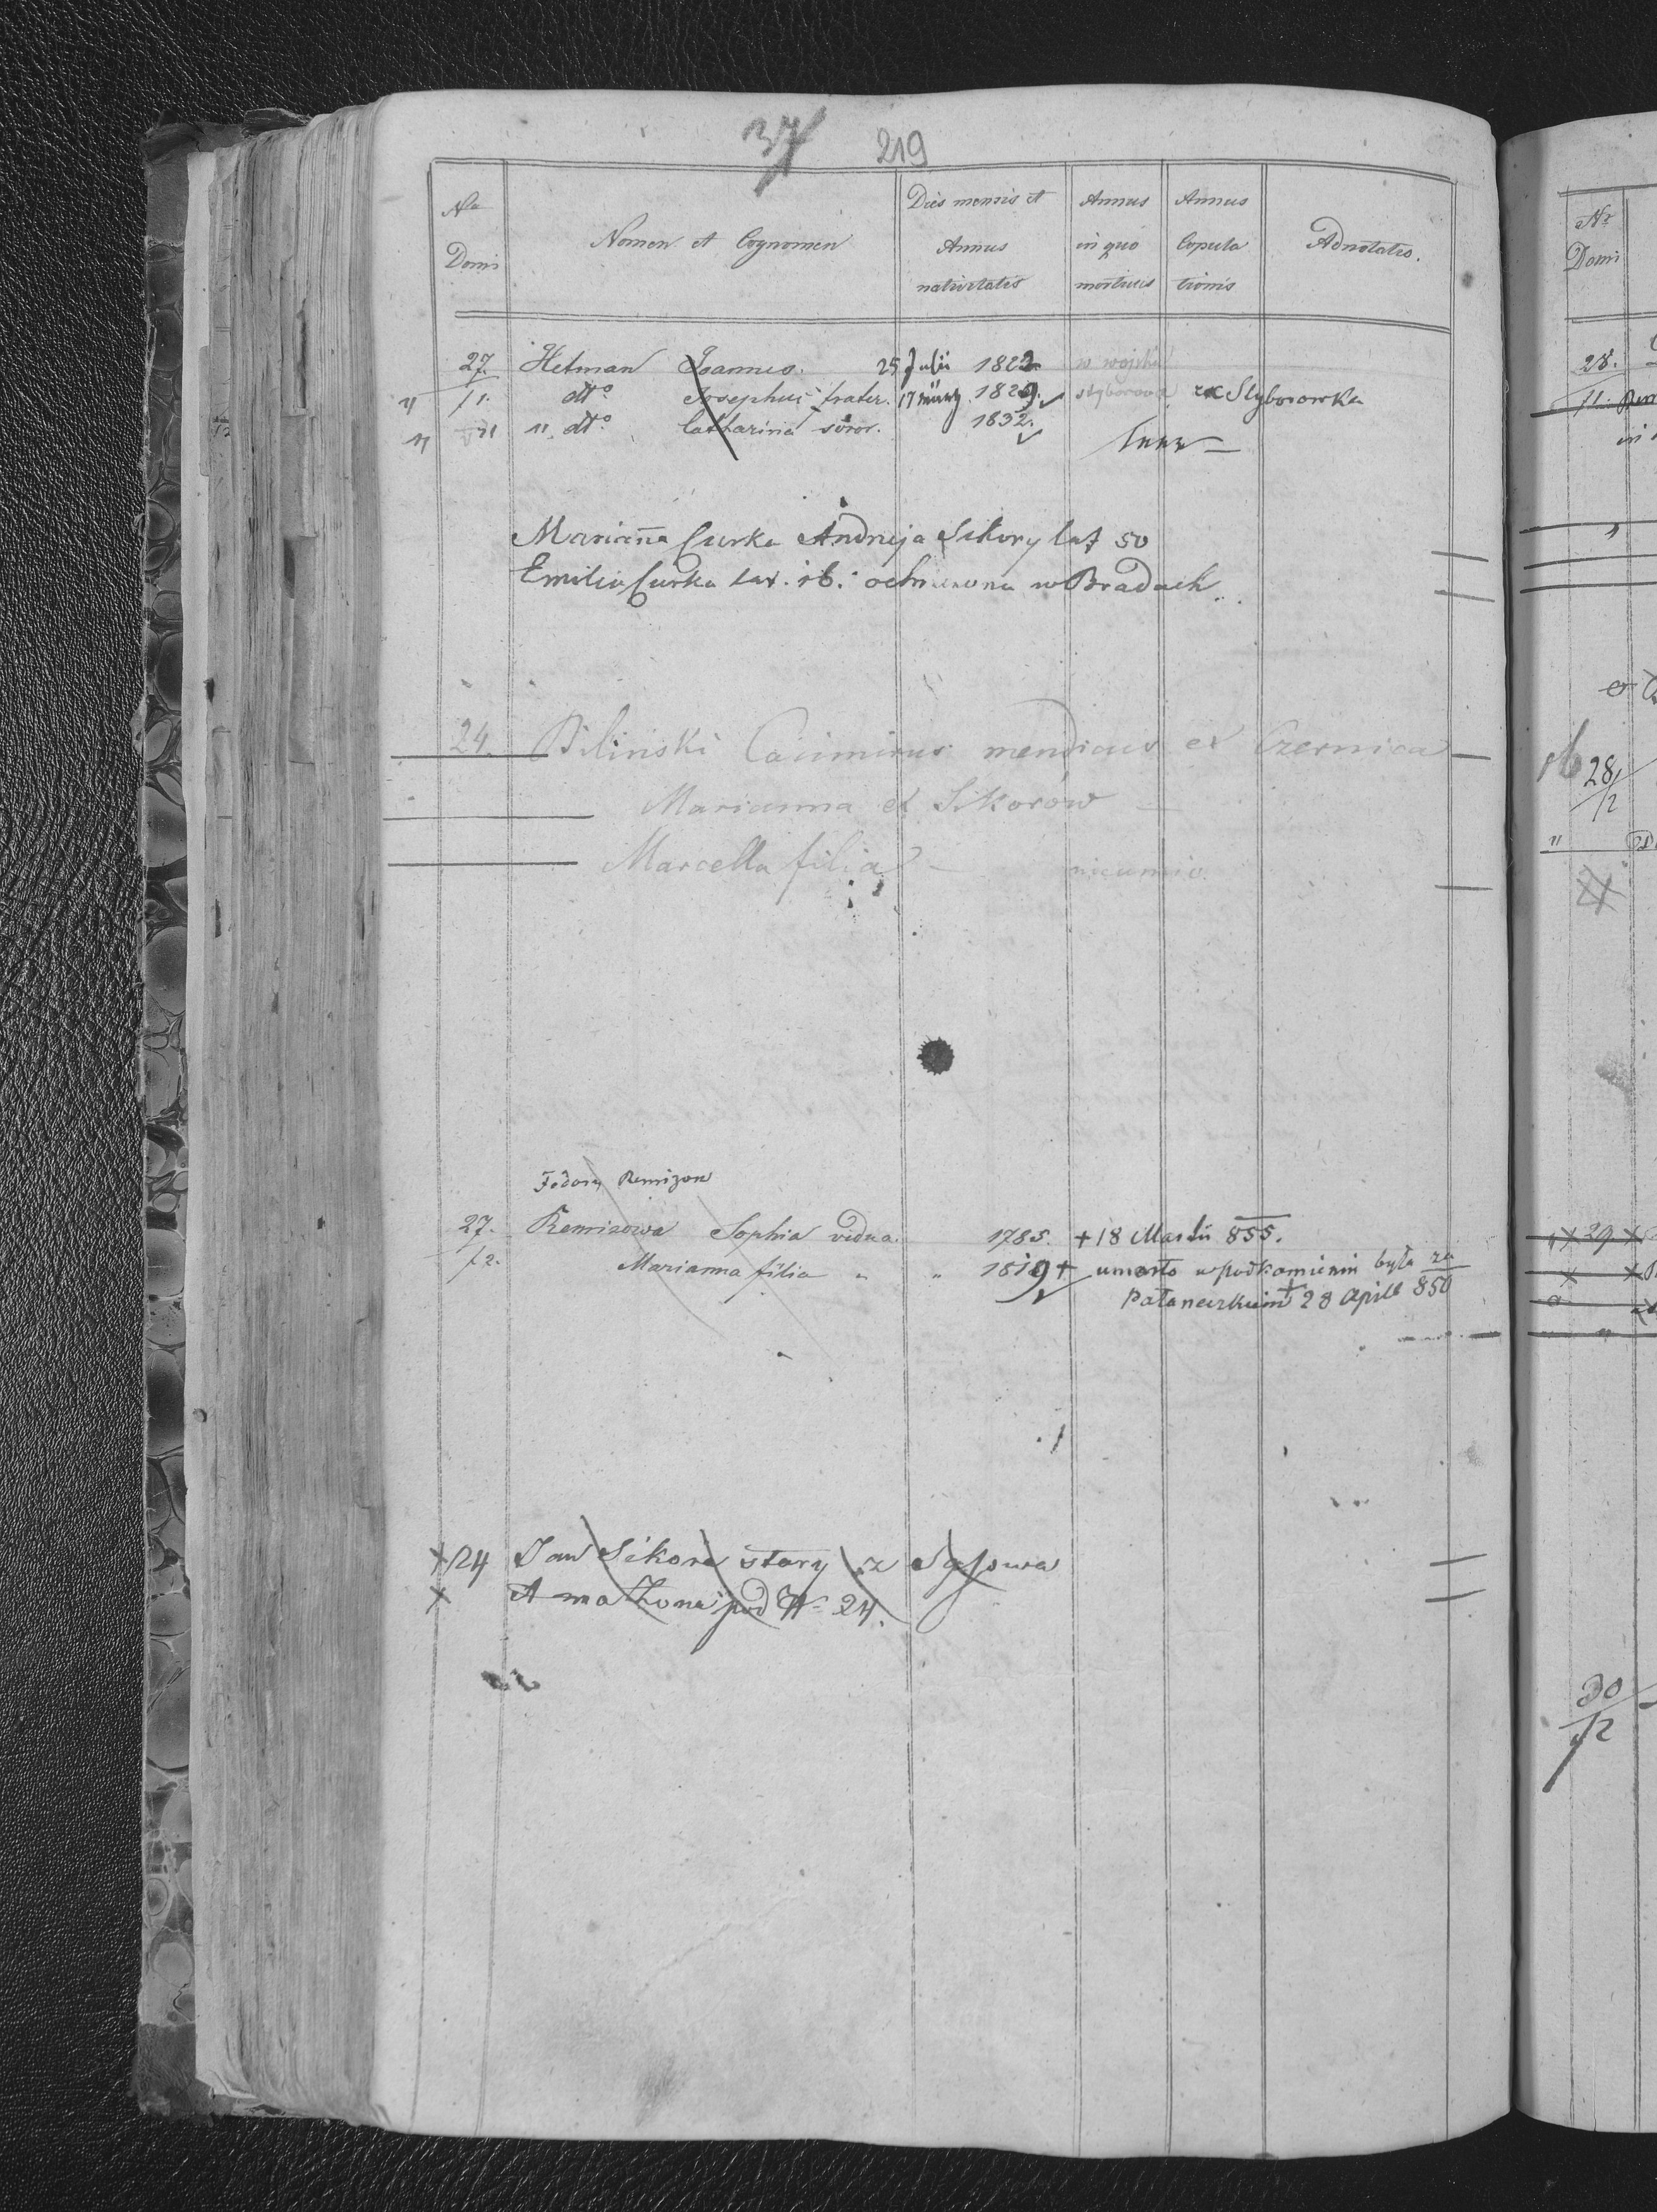 37 219
No Domi
Nomen et Cognomen
Dies mensis et Annus nativitatis
Annus in quo mortuus
Annus Copulationis
Adnotatio.
27. Hetman Joannes. 25 Julii 1822 w wojsku
" /1. dto Josephus frater. 17 1829. za Styborowka
" " " dto Catharina soror. 1832.
Marianna Curka Andrzeja Sikory lat 50
Emilia Curka lat. 16. ochrzcona w Brodach
24. Biliński Casimirus mendicus ex Czernica
Marianna et Sikorów
Marcella filia nieumie
Fedory Remizow
27. Remizowa Sophia vidua. 1785. + 18 Martii 855.
/2. Marianna filia " " 1819 + umarła w podkamieniu była za
+ 28 April 850
x 24 Jan Sikora stary z Sassowa
x A ma Żona pod No 24.
Nr Domi
28.
/1.
16 28/2
"
24
x 29 x
30/2